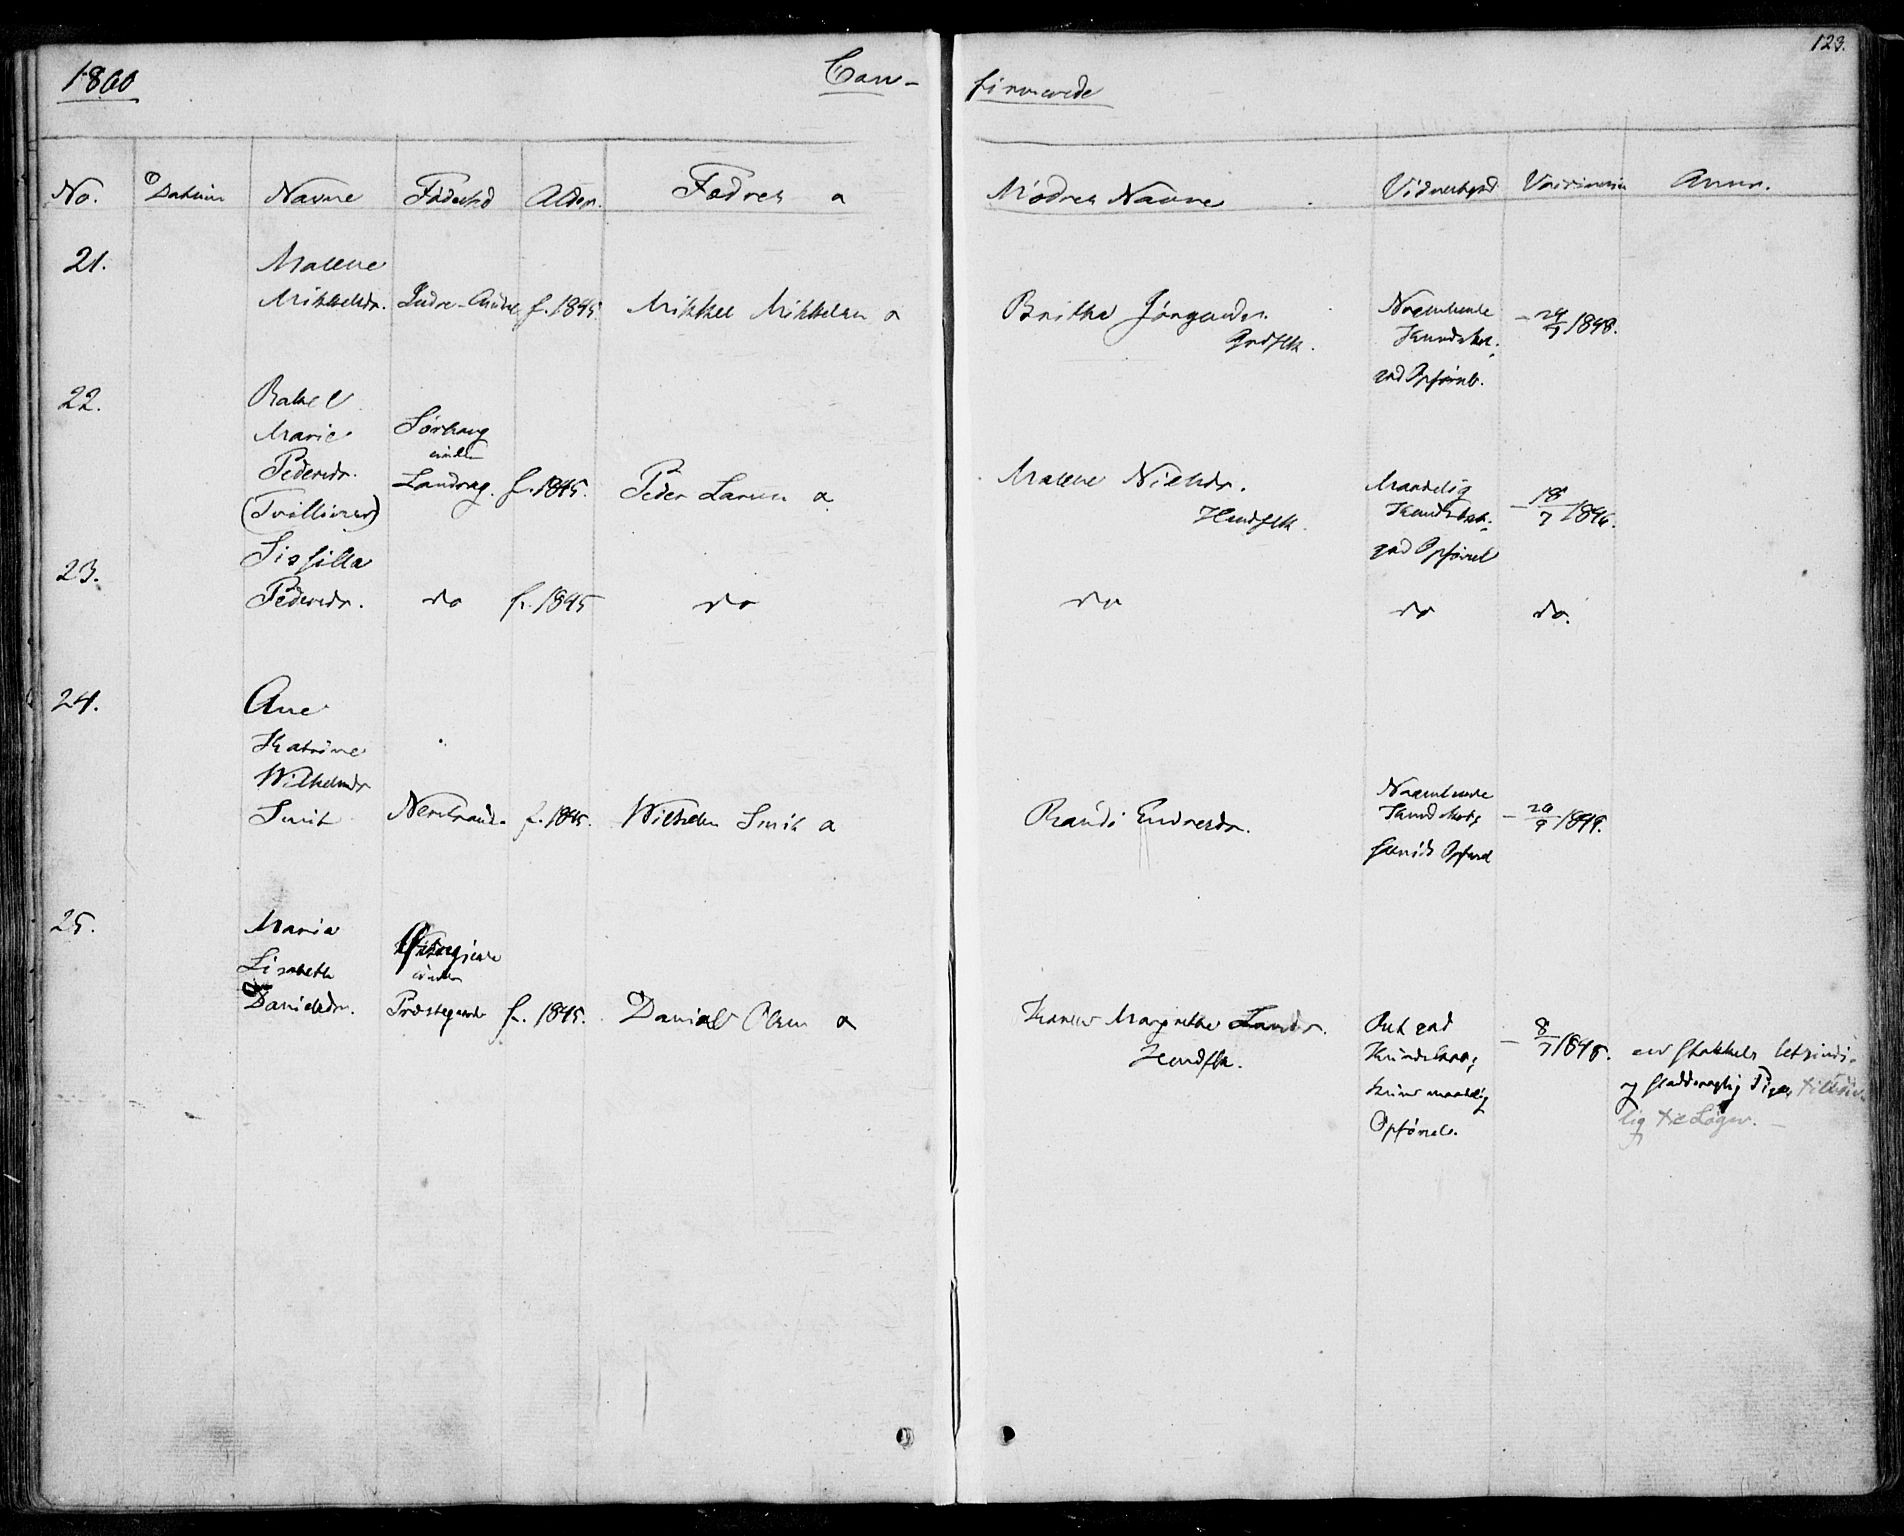 1860 Con- firmerede 123.
No. Datum Navne Fødested Alder. Fædres o Mødres Navne Vidnesbyrd Vaccination Anm.
21. Malene
Mikkelsdr. Indre- f. 1845. Mikkel Mikkelsen o Brithe Jørgensdr.
Grdflk.
Nogenlunde
Kundskab,
god Opførsel.
29/9 1848.
22. Rakel
Marie
Pedersdr.
(Tvillinger)
Sørhaug
under
Landrag. f. 1845. Peder Larsen o Malene Nielsdr.
Huusflk.
Maadelig
Kundskab,
god Opførsel
18/7 1846.
23. Sissilla
Pedersdr. do f. 1845 do do do do.
24. Ane
Katrine
Wilhelmsdr
Smit f. 1845. Wilhelm Smit o Randi Endresdr.
Nogenlunde
Kundskab,
Opførsel
20/9 1849.
25. Maria
Lisabeth
Danielsdr.
under
Præstegaard f. 1845. Daniel Olsen o Karen Margrethe Larsdr.
Huusflk.
Ret god
Kundskab,
kun maadelig
Opførsel.
8/7 1848. en stakkels letsindig
og sladdervorn Pige, tilbøie-
lig til Løgn. –